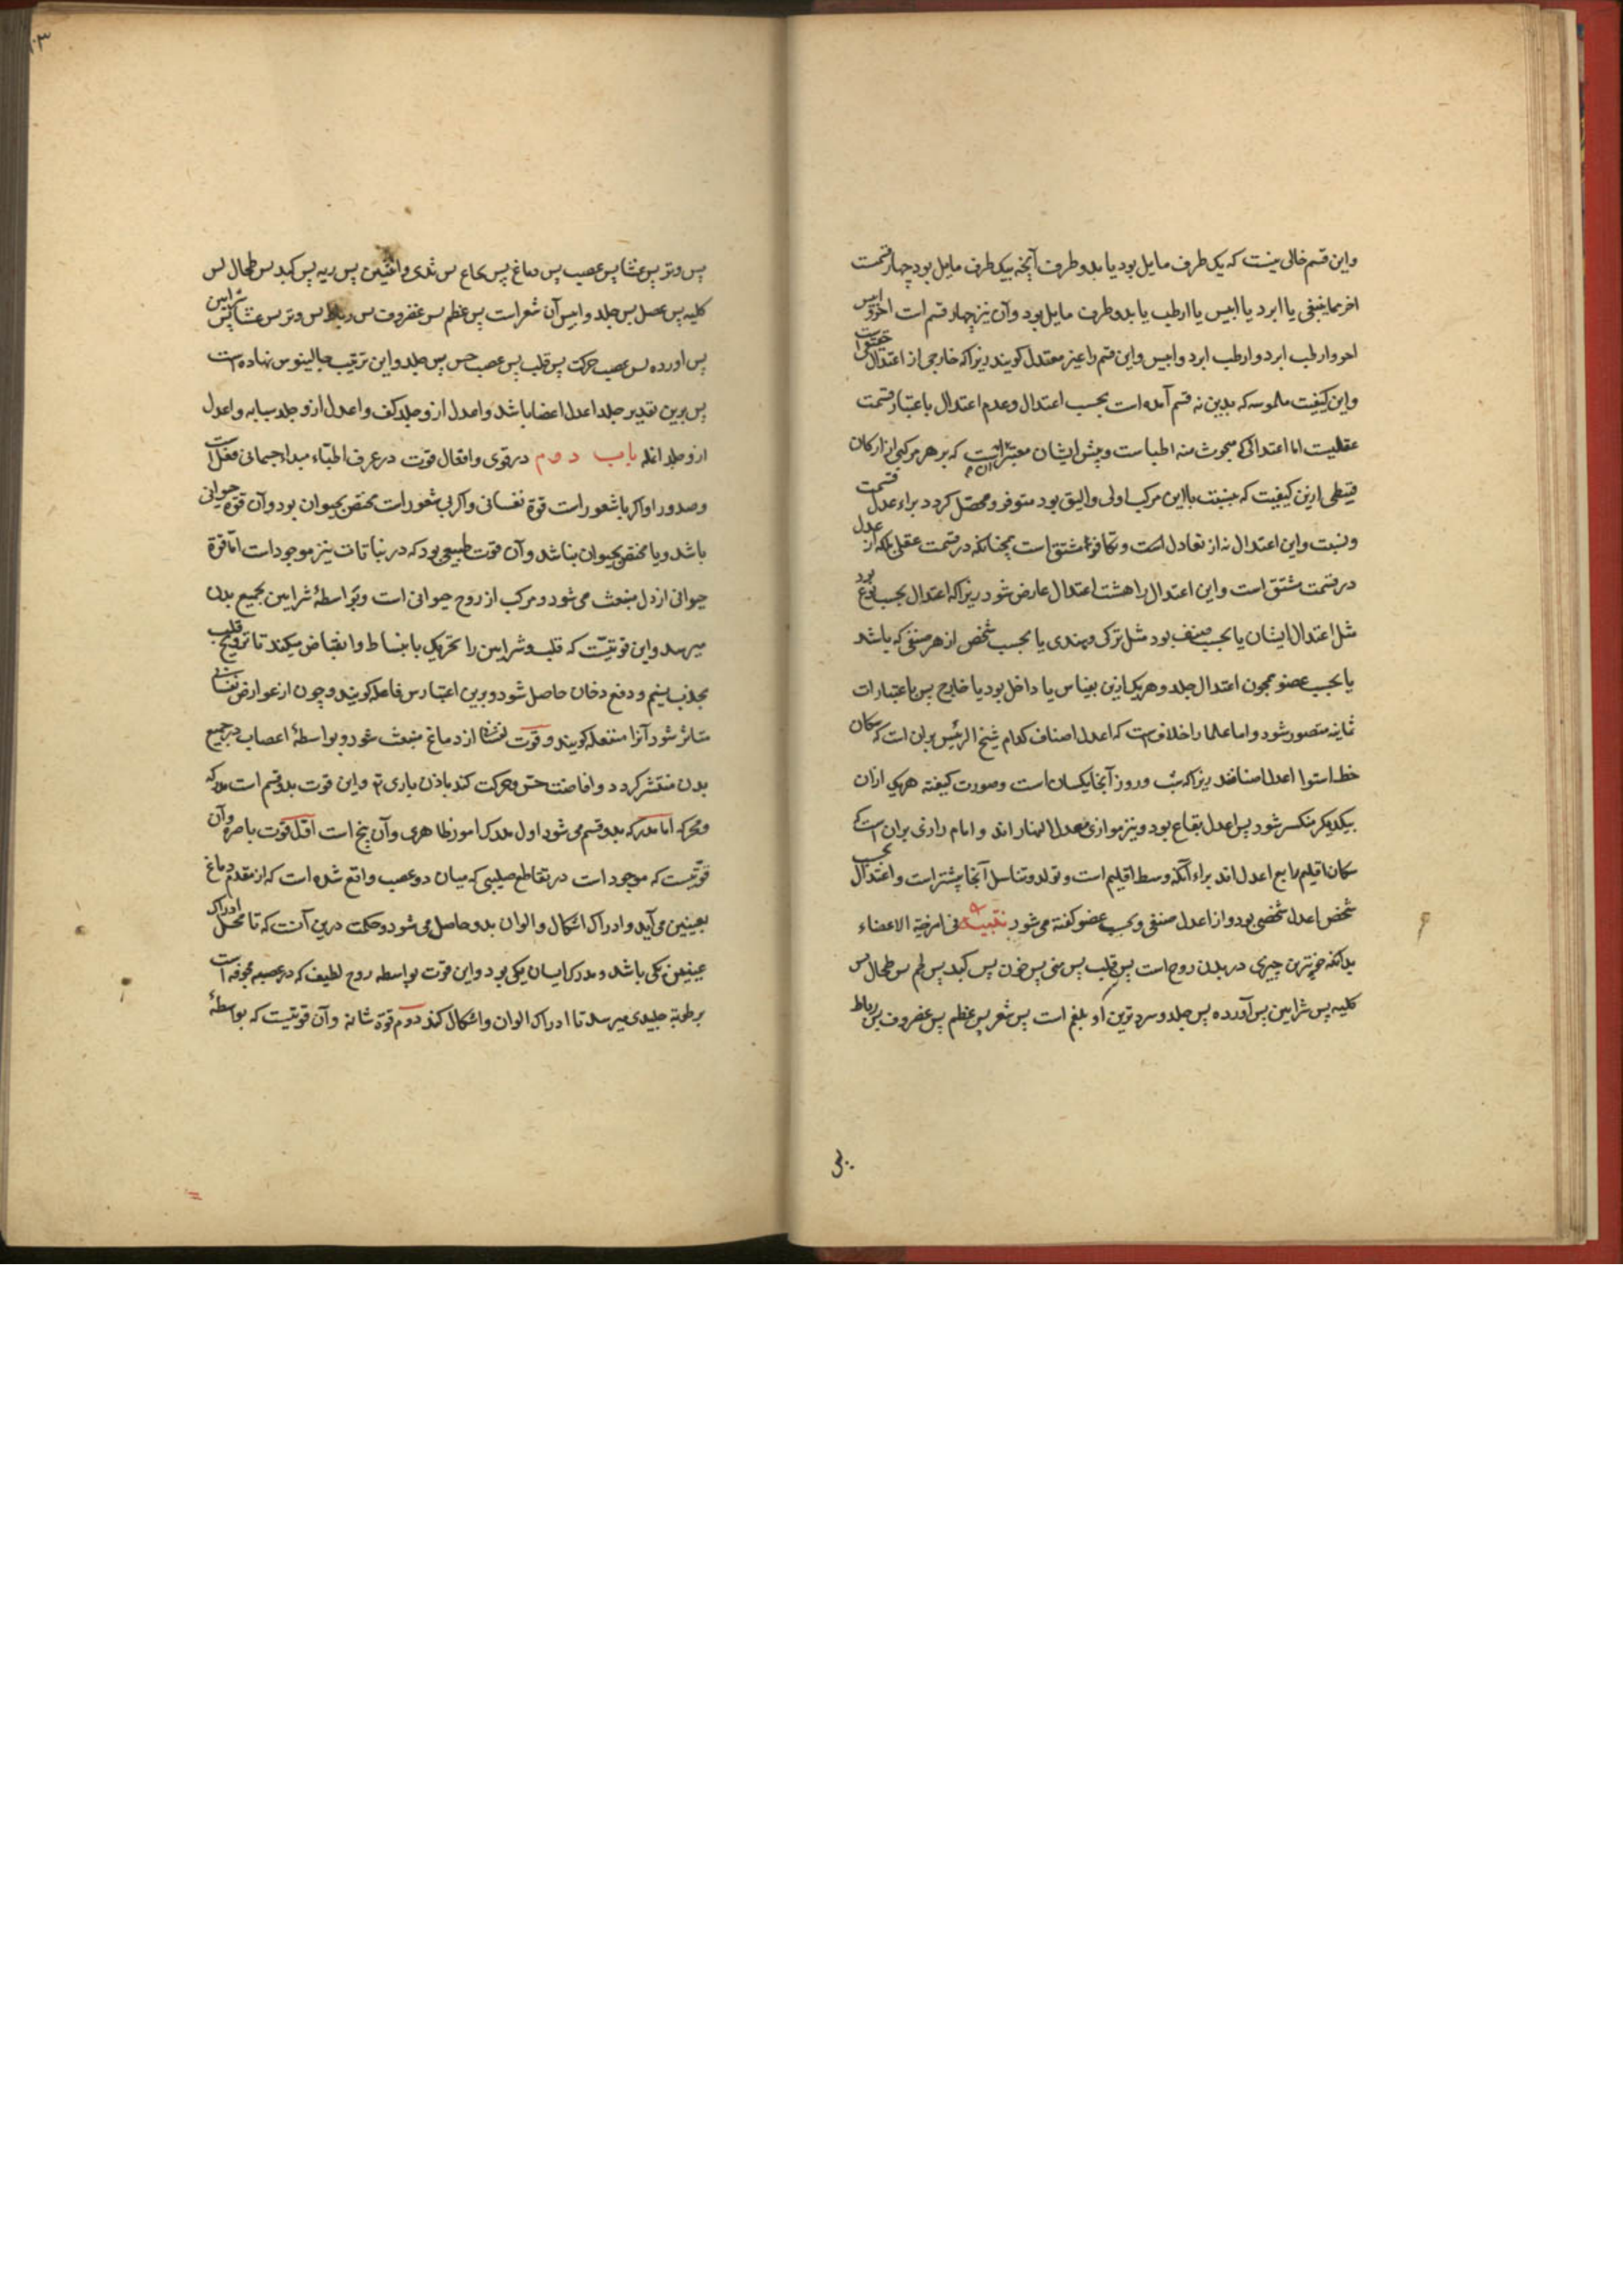 واین قسم خالی نیست که بیک طرف مایل بود یا بدو طرف آنچه بیک طرف مایل بود چهار قسمت
احر مماینبغی یا ابرد یا ایبس یا ارطب یا بدو طرف مایل بود وآن نیز چهار قسم است احر وایبس
احر وارطب ابرد وارطب ابرد وایبس واین قسم را غیر معتدل کویند زیراکه خارجی از اعتدال حقیقی است
واین کیفیت ملموسه که بدین نه قسم آمده است بحسب اعتدال وعدم اعتدال باعتبار قسمت
عقلیت اما اعتدالی که مبحوث منه اطباست وپیش ایشان معتبر آنست که بر هر مرکبی از ارکان
قسطی ازین کیفیت که بنسبت با این مرکب اولی والیق بود متوفر ومحصل کردد براء عدل قسمت
ونسبت واین اعتدال نه از تعادل است وتکافو مشتق است چنانکه در قسمت عقلی بلکه از عدل
در قسمت مشتق است واین اعتدال را هشت اعتدال عارض شود زیراکه اعتدال بحسب نوع بود
مثل اعتدال ایشان یا بحسب صنف بود مثل ترکی وهندی یا بحسب شخص از هر صنفی که باشد
یا بحسب عضو همچون اعتدال جلد وهر یک ازین بقیاس یا داخل بود یا خارج پس باعتبارات
ثمانیه متصور شود واما علما را خلافست که اعدل اصناف کدام شیخ الرئیس بران است که سکان
خط استوا اعدل اصنافند زیراکه شب وروز آنجا یکسان است وصورت کیفیته هریک ازان
بیکدیکر منکسر شود پس اعدل بقاع بود ونیز موازی معدل النهار اند وامام رازی بران است که
سکان اقلیم رابع اعدل اند براء آنکه وسط اقلیم است وتولد وتناسل آنجا بیشتر است واعتدال بحسب
شخص اعدل شخصی بود از اعدل صنفی وبحسب عضو کفته می شود تنبیه فی امزجة الاعضاء
بدانکه حرترین چیزی در بدن روح است پس قلب پس منی پس خون پس کبد پس لحم پس طحال پس
کلیه پس شرایین پس آورده پس جلد وسردترین او بلغم است پس شعر پس عظم پس غضروف پس رباط
پس
پس وتر پس غشا پس عصب پس دماغ پس نخاع پس ثدی وانثیین پس ریه پس کبد پس طحال پس
کلیه پس عضل پس جلد وایبس آن شعر است پس عظم پس غضروف پس رباط پس وتر پس غشا پس شرایین
پس اورده پس عصب حرکت پس قلب پس عصب حس پس جلد واین ترتیب جالینوس نهاده است
پس برین تقدیر جلد اعدل اعضا باشد واعدل ازو جلد کف واعدل ازو جلد سبابه واعدل
ازو جلد انمله باب دوم در قوی وافعال قوت در عرف اطباء مبداء جسمانی فعل است
وصدور او اکر باشعور است قوة نفسانی واکر بی شعور است مختص بحیوان بود وآن قوة حیوانی
باشد ویا مختص بحیوان نباشد وآن قوت طبیعی بود که در نباتات نیز موجود است اما قوة
حیوانی از دل منبعث می شود ومرکب از روح حیوانی است وبواسطهٔ شرایین بجمیع بدن
میرسد واین قوتیست که قلب وشرایین را تحریک بانبساط وانقباض میکند تا ترویح قلب
بجذب نسیم ودفع دخان حاصل شود وبرین اعتبارس فاعله کویند وچون از عوارض نفسانی
متاثر شود آنرا منفعله کویند وقوت نفسانی از دماغ منبعث شود وبواسطهٔ اعصاب در جمیع
بدن منتشر کردد وافاضت حس وحرکت کند باذن باری تع واین قوت بدو قسم است مدرکه
ومحرکه اما مدرکه بدو قسم می شود اول مدرک امور ظاهری وآن پنج است اول قوت باصره وآن
قوتیست که موجود است در تقاطع صلیبی که میان دو عصب واقع شده است که از مقدم دماغ
بعینین می آید وادراک اشکال والوان بدو حاصل می شود وحکمت درین آنست که تا محل ادراک
عینین یکی باشد ومدرک ایشان یکی بود واین قوت بواسطه روح لطیف که در عصبه مجوفه است
برطوبة جلیدی میرسد تا ادراک الوان واشکال کند دوم قوة شامه وآن قوتیست که بواسطهٔ